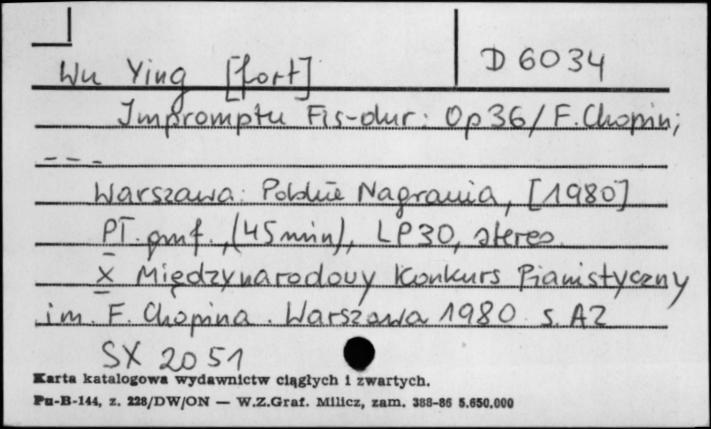 D 6034
Wu Ying [fort]
Impromptu Fis-dur: Op 36/ F. Chopin;
---
Warszawa: Polskie Nagrania, [1980]
PŁ. gmf., (45 min), LP30, stereo.
X Międzynarodowy Konkurs Pianistyczny
im. F. Chopina. Warszawa 1980 s. A2
SX 2051
Karta katalogowa wydawnictw ciągłych i zwartych.
Pu-B-144, z. 228/DW/ON — W.Z.Graf. Milicz, zam. 388-86 5.650.000